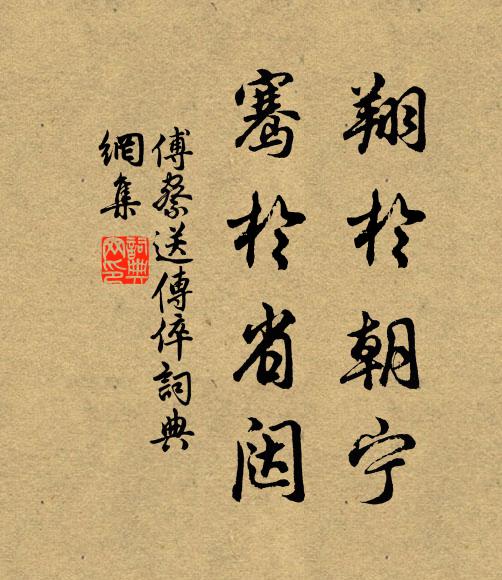 翔於朝宁
骞於省闼
傅察送傅倅詞典
網集
詞典网印